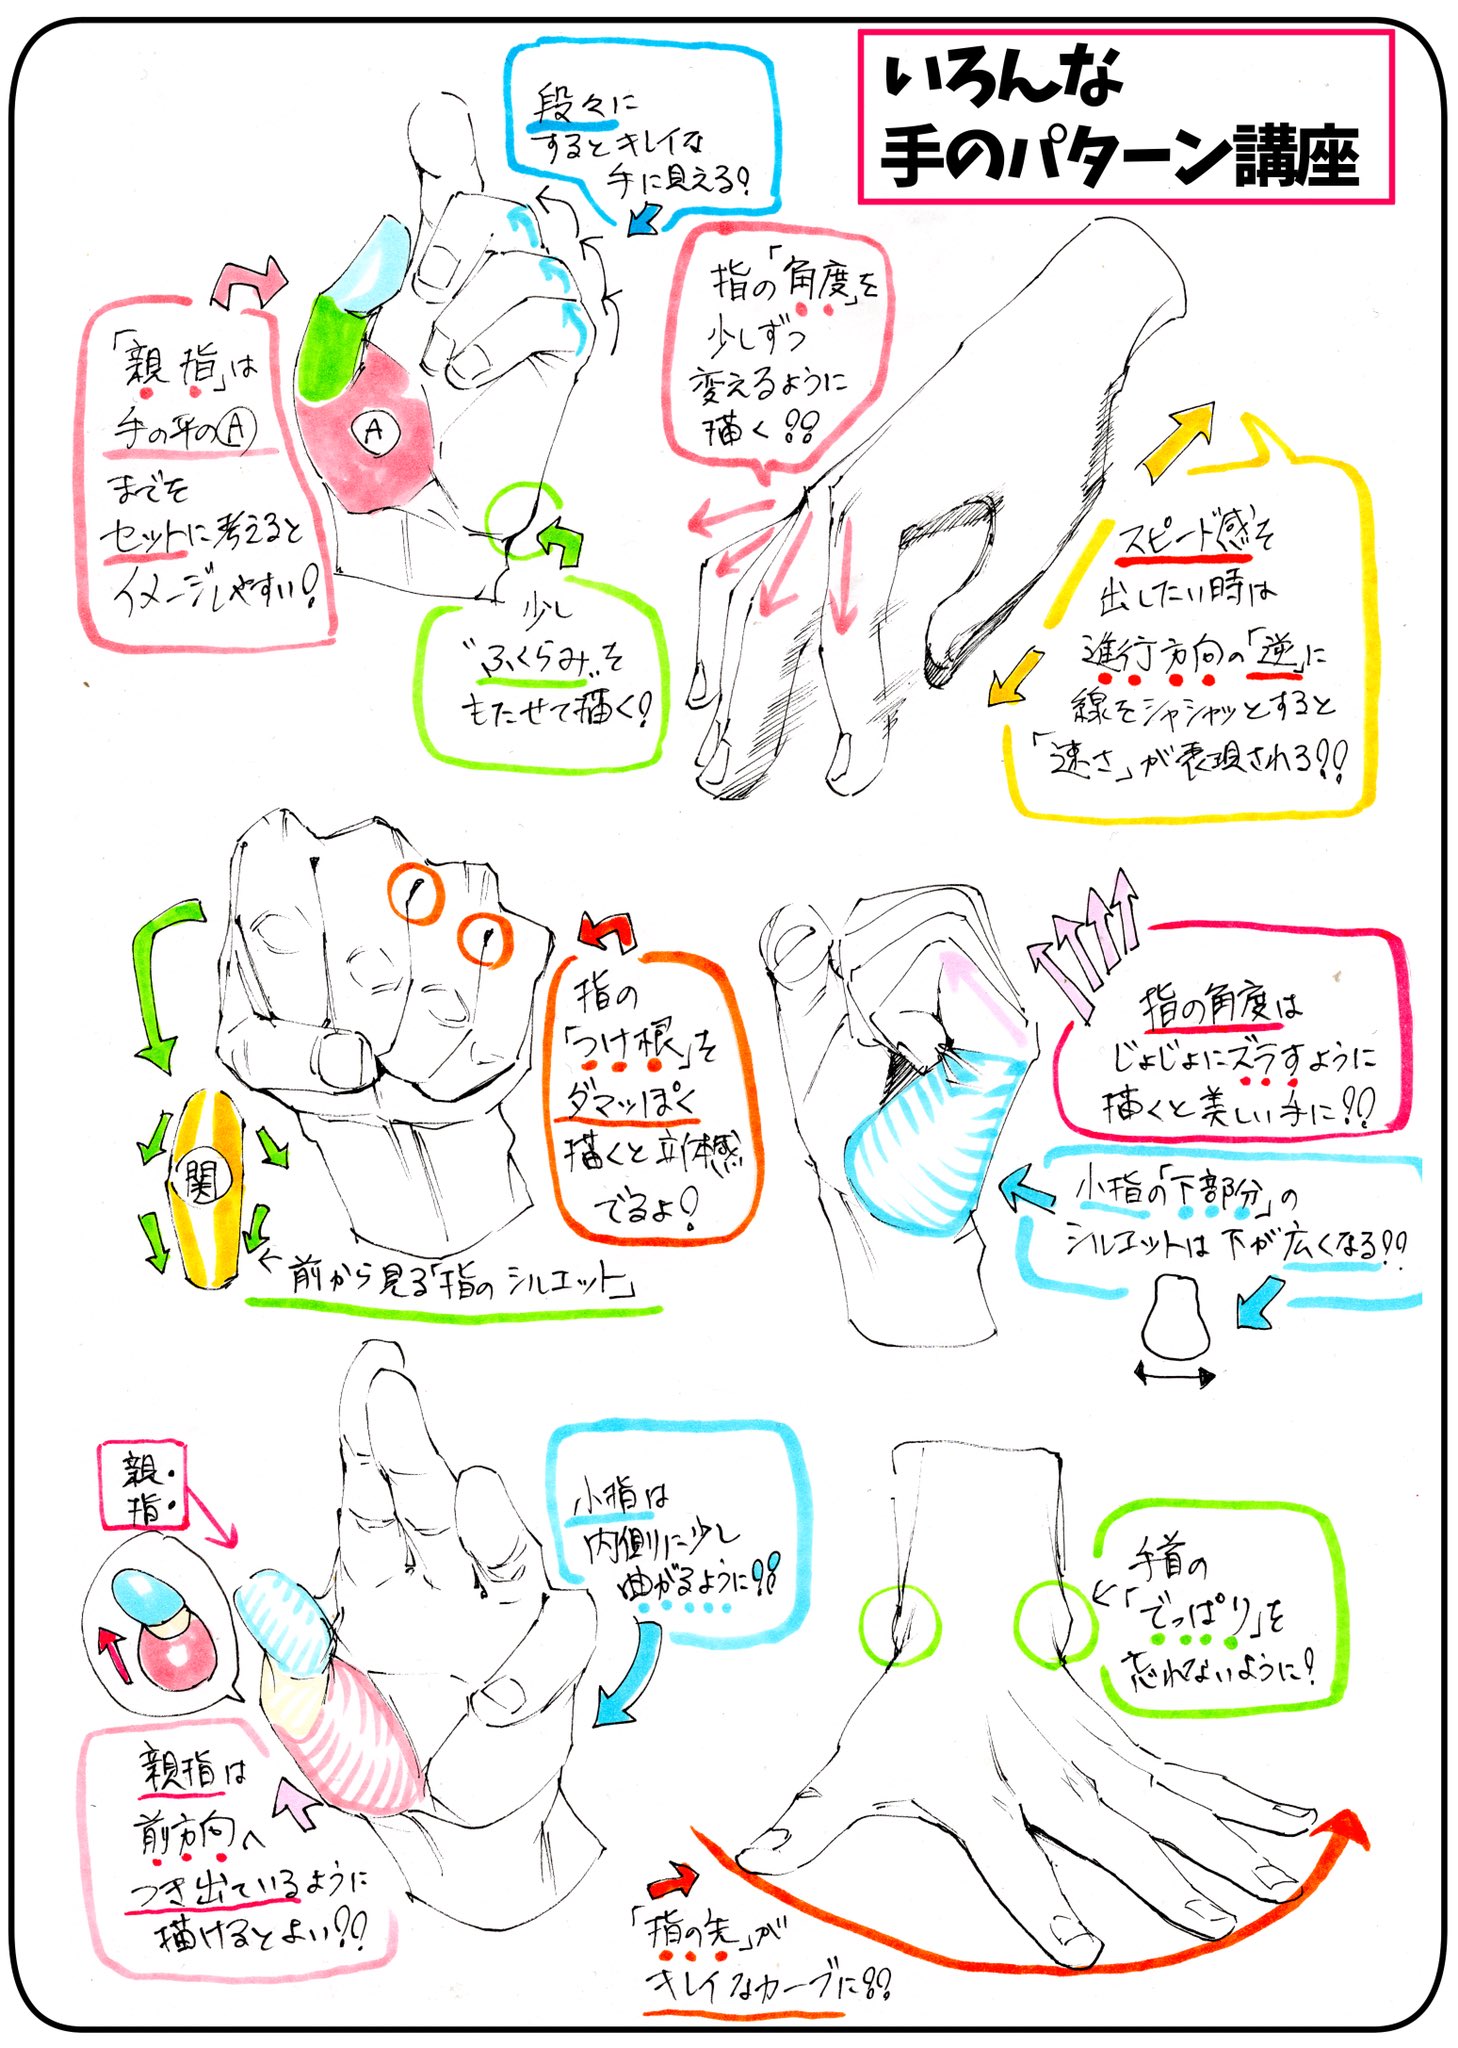 いろんな
手のパターン講座
段々に
するとキレイな
手に見える?
「親指」は
手の平のⒶ
までを
セットに考えると
イメージしやすい!
A
指の「角度」を
少しずつ
変えるように
描く!!
少し
"ふくらみ"を
もたせて描く!
スピード感を
出したい時は
進行方向の「逆」に
線をシャシャッとすると
「速さ」が表現される!!
指の
「つけ根」を
ダマッぽく
描くと立体感
でるよ!
関
←前から見る「指のシルエット」
指の角度は
じょじょにズラすように
描くと美しい手に!!
小指の「下部分」の
シルエットは下が広くなる!!
親・
指・
小指は
内側に少し
曲がるように!!
親指は
前方向へ
つき出ているように
描けるとよい!!
手首の
「でっぱり」を
忘れないように!
「指の先」が
キレイなカーブに!!